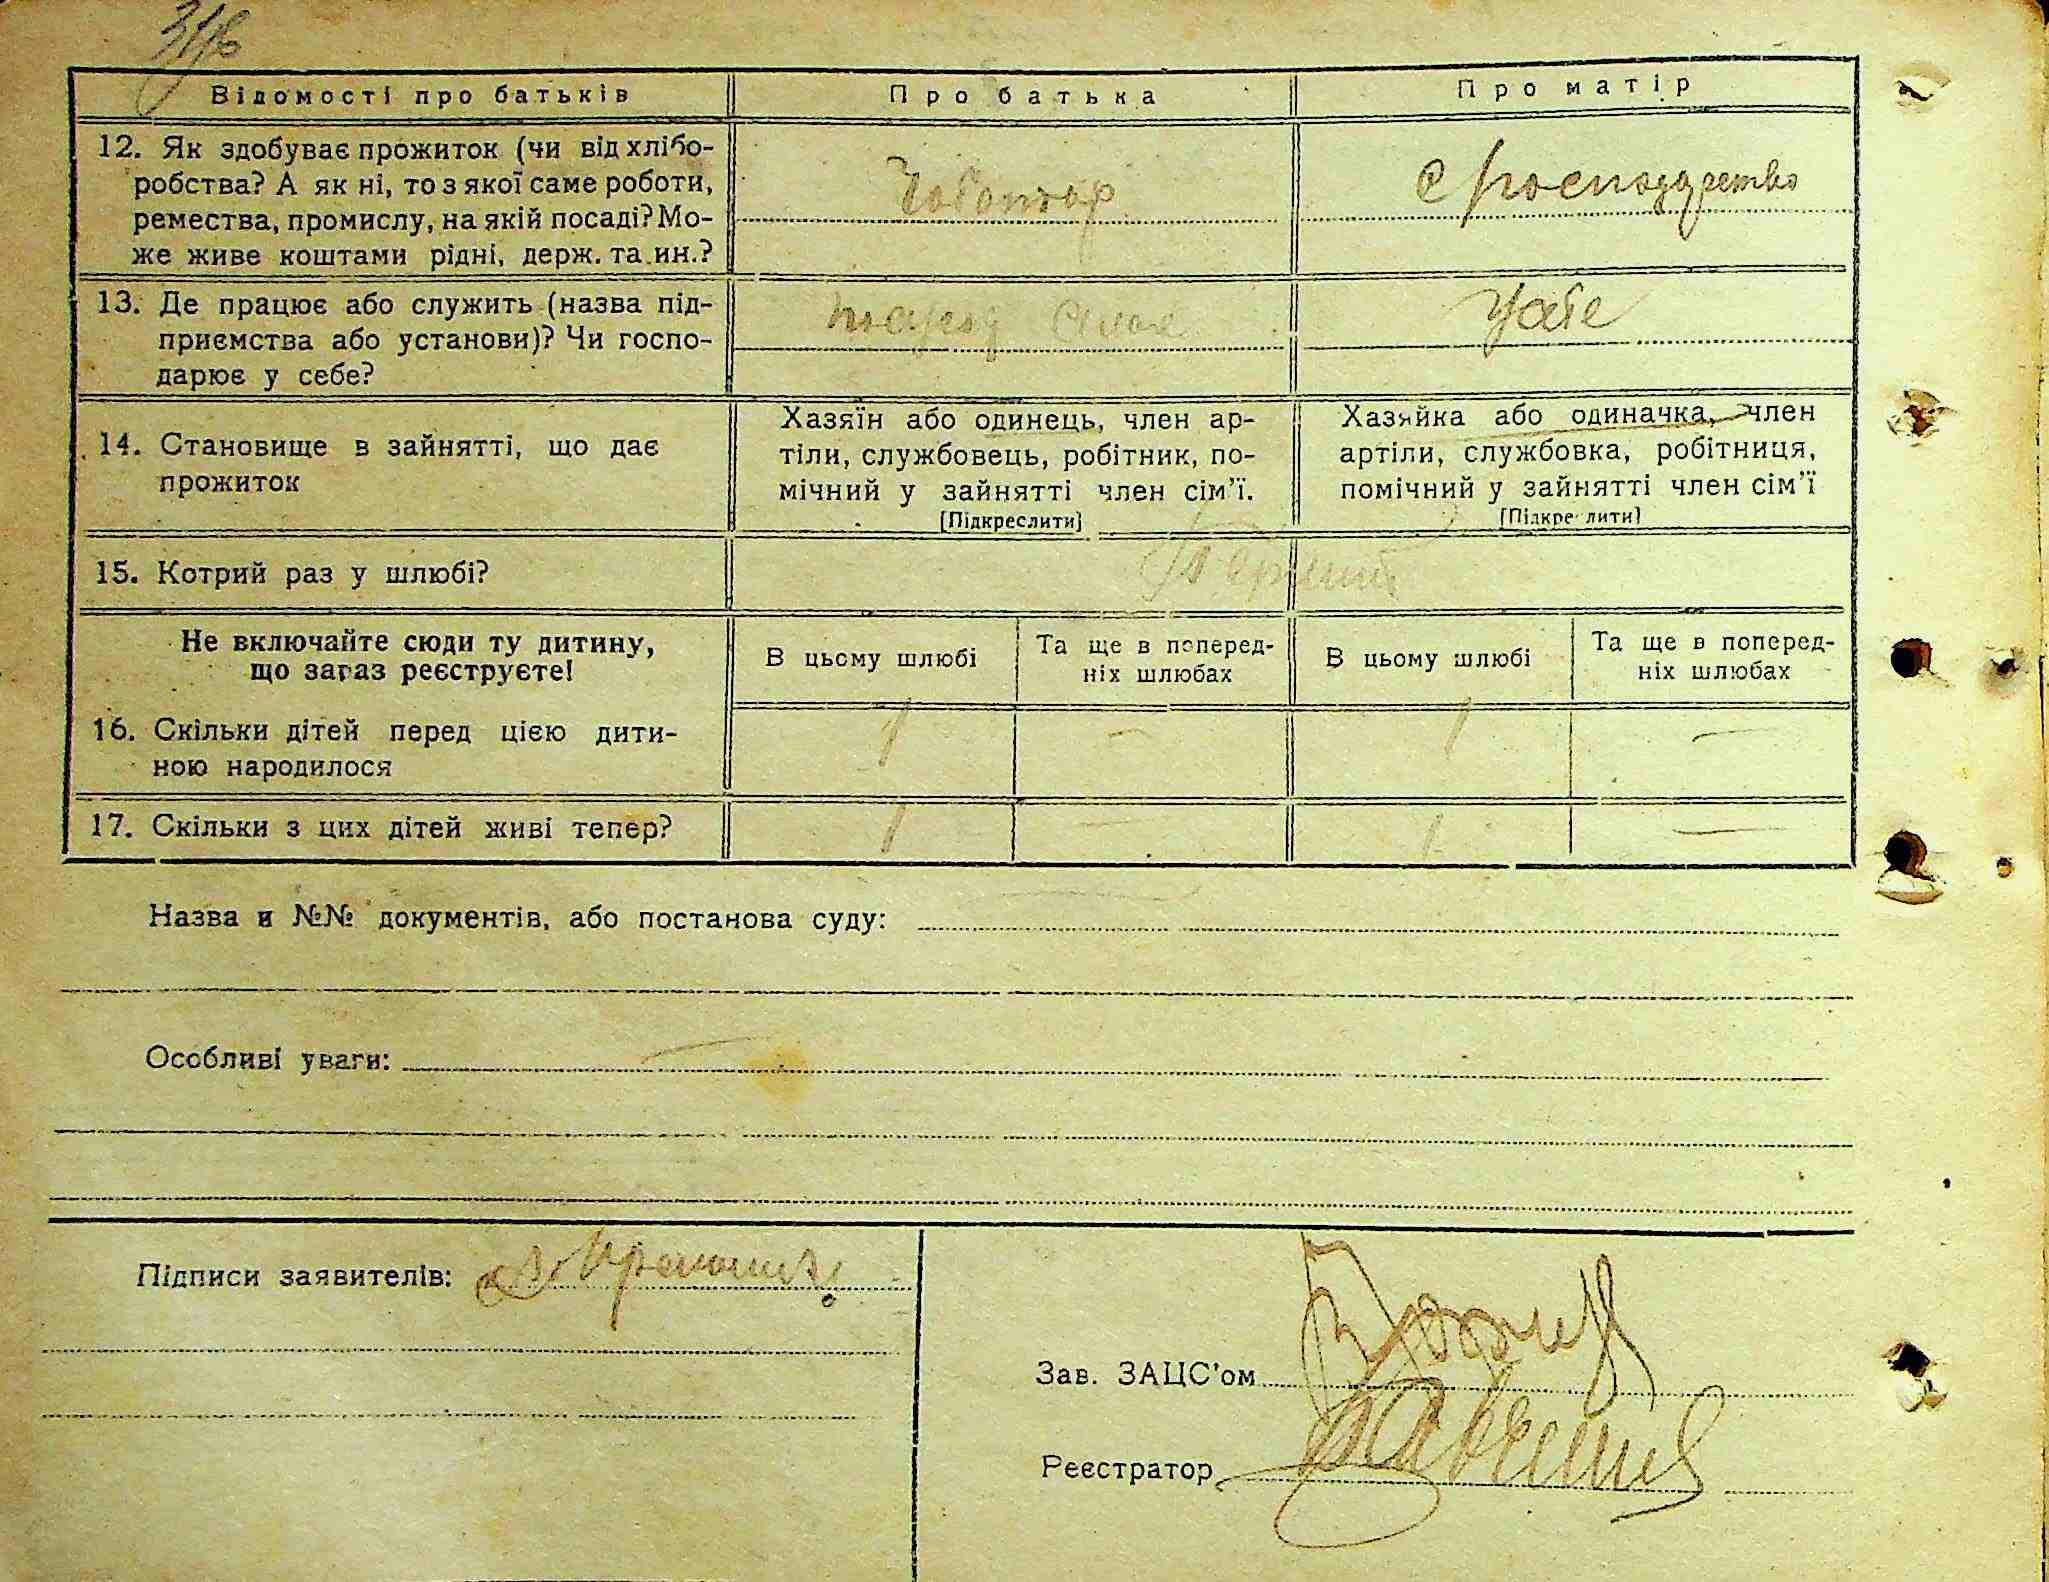 Відомості про батьків
Про батька
Про матір
12. Як здобуває прожиток (чи від хлібо-
робства? А як ні, то з якої саме роботи,
ремества, промислу, на якій посаді? Мо-
же живе коштами рідні, держ. та ин.?
Чоботар
Господарство
13. Де працює або служить (назва під-
приємства або установи)? Чи госпо-
дарює у себе?
14. Становище в зайнятті, що дає
прожиток
Хазяїн або одинець, член ар-
тіли, службовець, робітник, по-
мічний у зайнятті член сім'ї.
[Підкреслити]
Хазяйка або одиначка, член
артіли, службовка, робітниця,
помічний у зайнятті член сім'ї
[Підкреслити]
15. Котрий раз у шлюбі?
Перший
Не включайте сюди ту дитину,
що зараз реєструєте!
В цьому шлюбі
Та ще в поперед-
ніх шлюбах
В цьому шлюбі
Та ще в поперед-
ніх шлюбах
16. Скільки дітей перед цією дити-
ною народилося
1 – 1 –
17. Скільки з цих дітей живі тепер?
1 1 –
Назва и №№ документів, або постанова суду:
Особливі уваги:
Підписи заявителів:
Зав. ЗАЦС'ом
Реєстратор